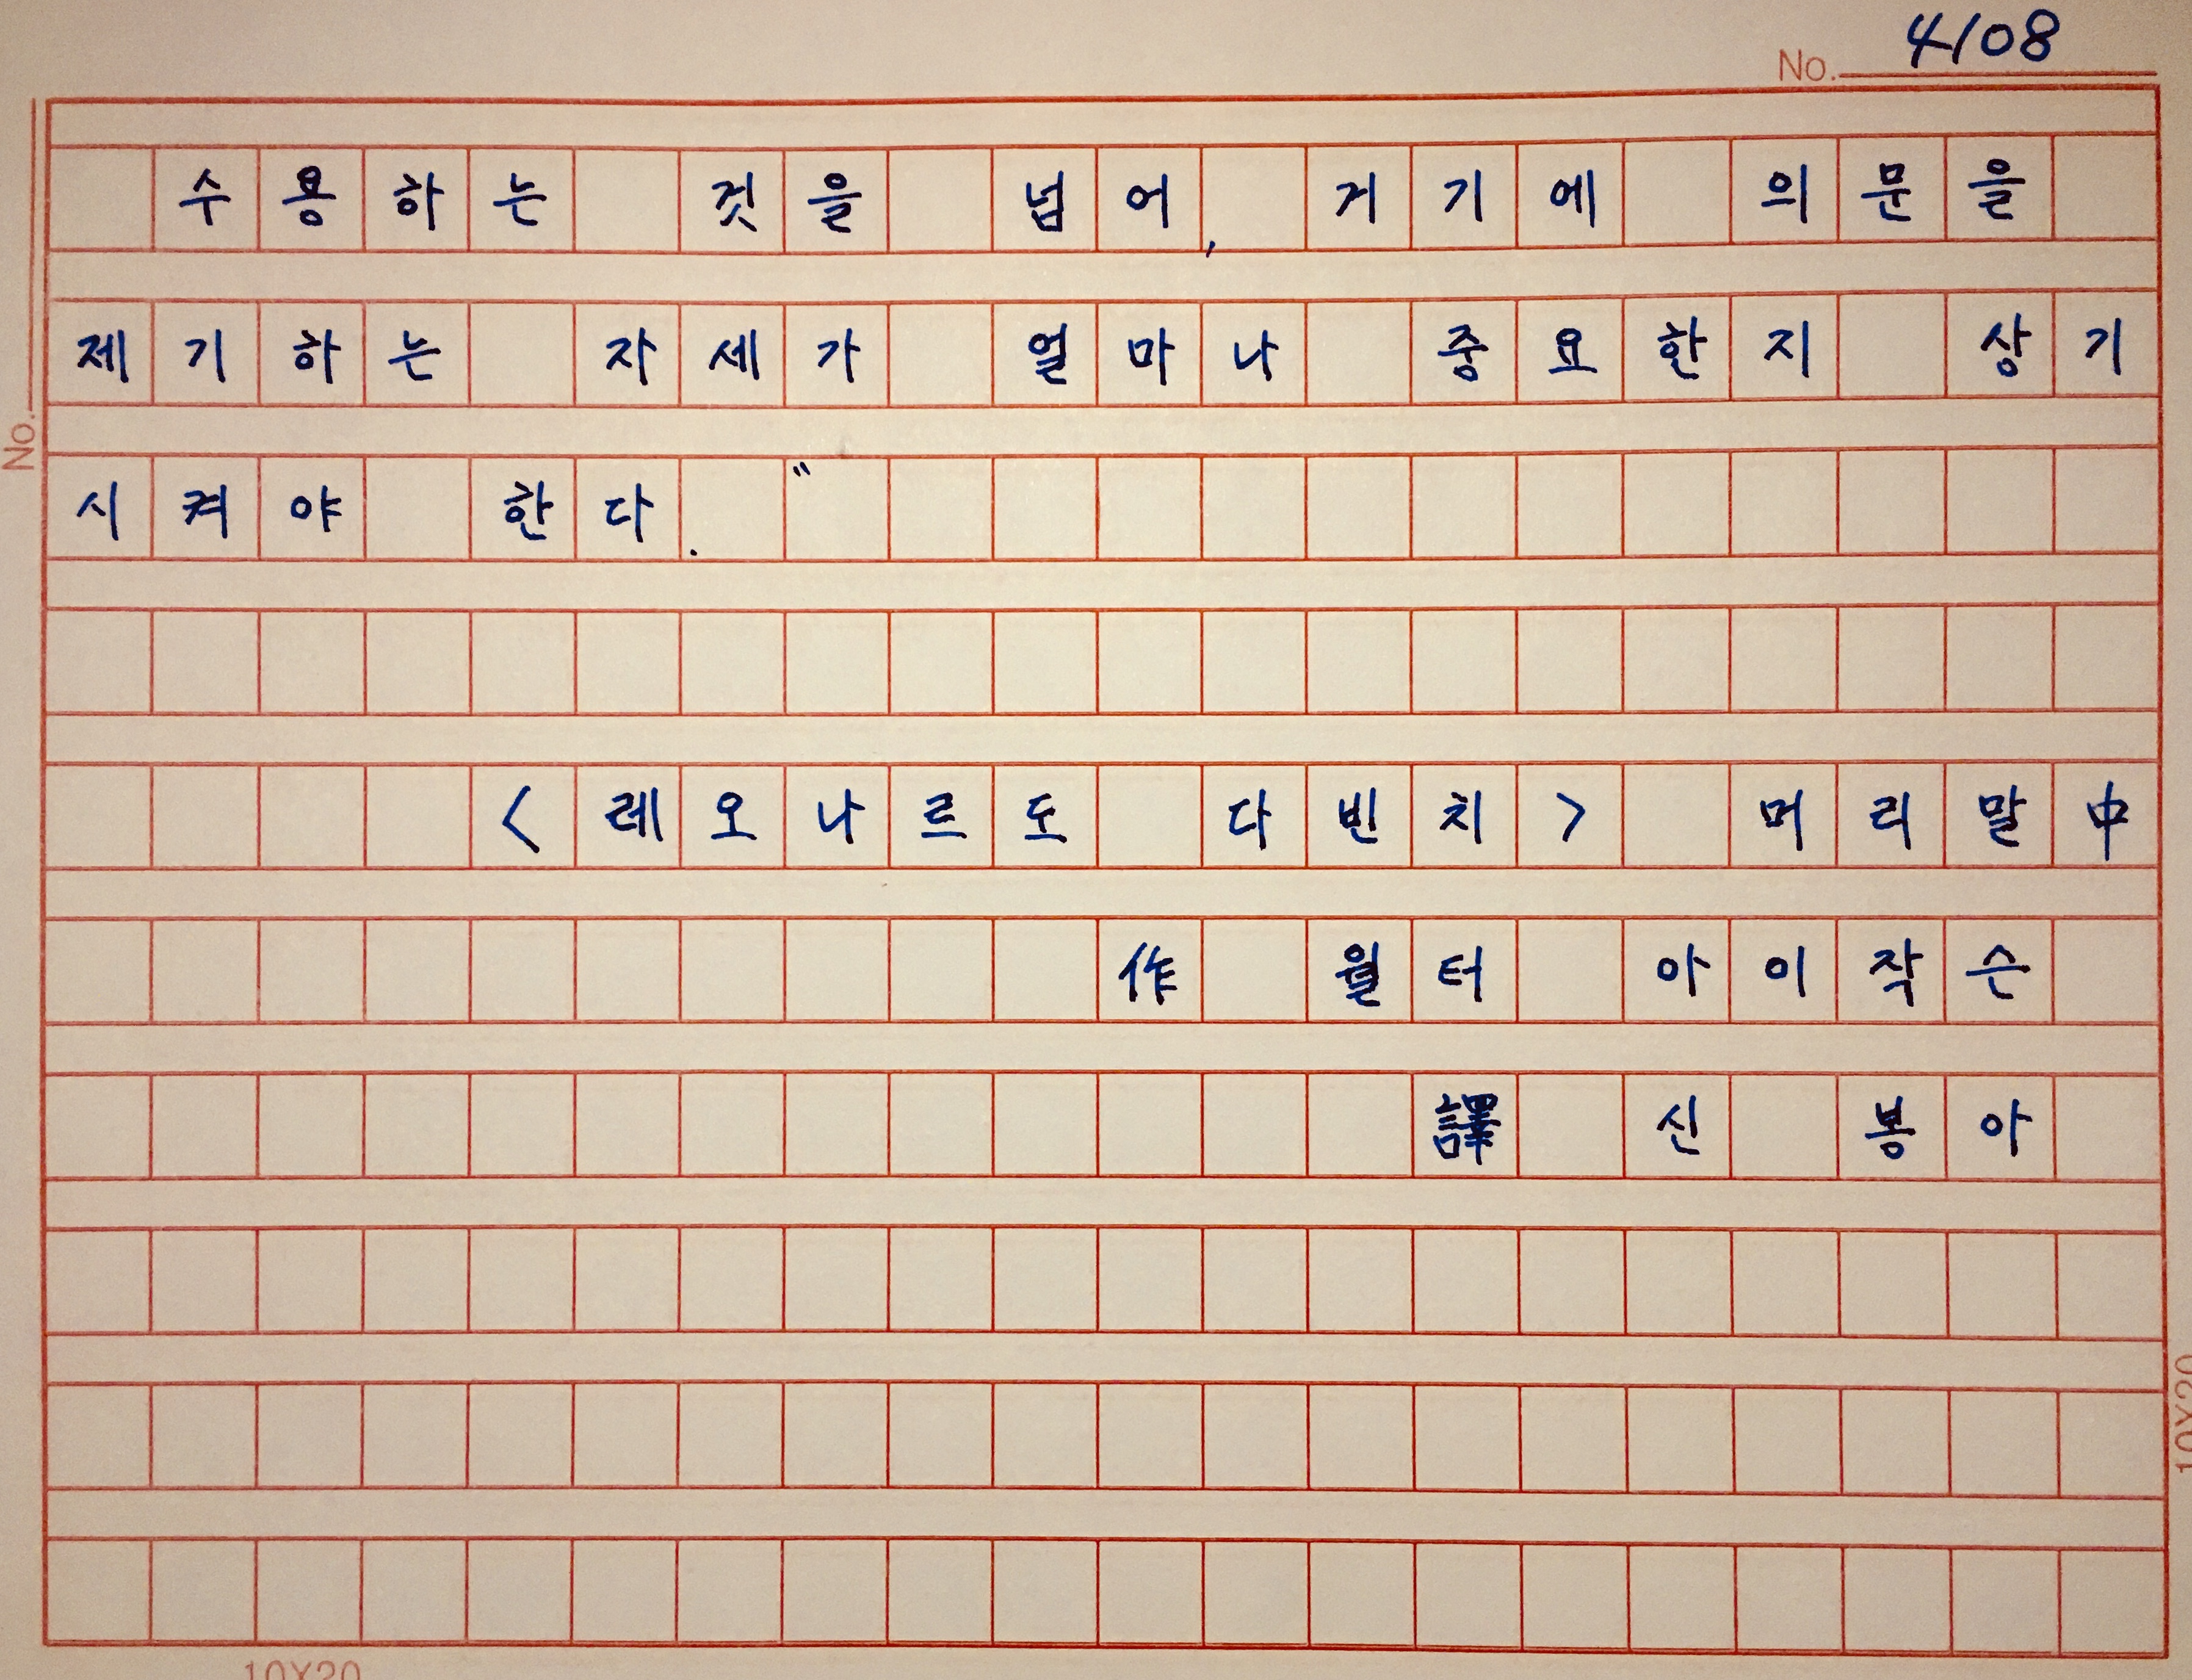 No. 4108
수용하는 것을 넘어, 거기에 의문을
제기하는 자세가 얼마나 중요한지 상기
시켜야 한다."
<레오나르도 다빈치> 머리말 中
作 월터 아이작슨
譯 신 봉아
No.
10X20
10X20